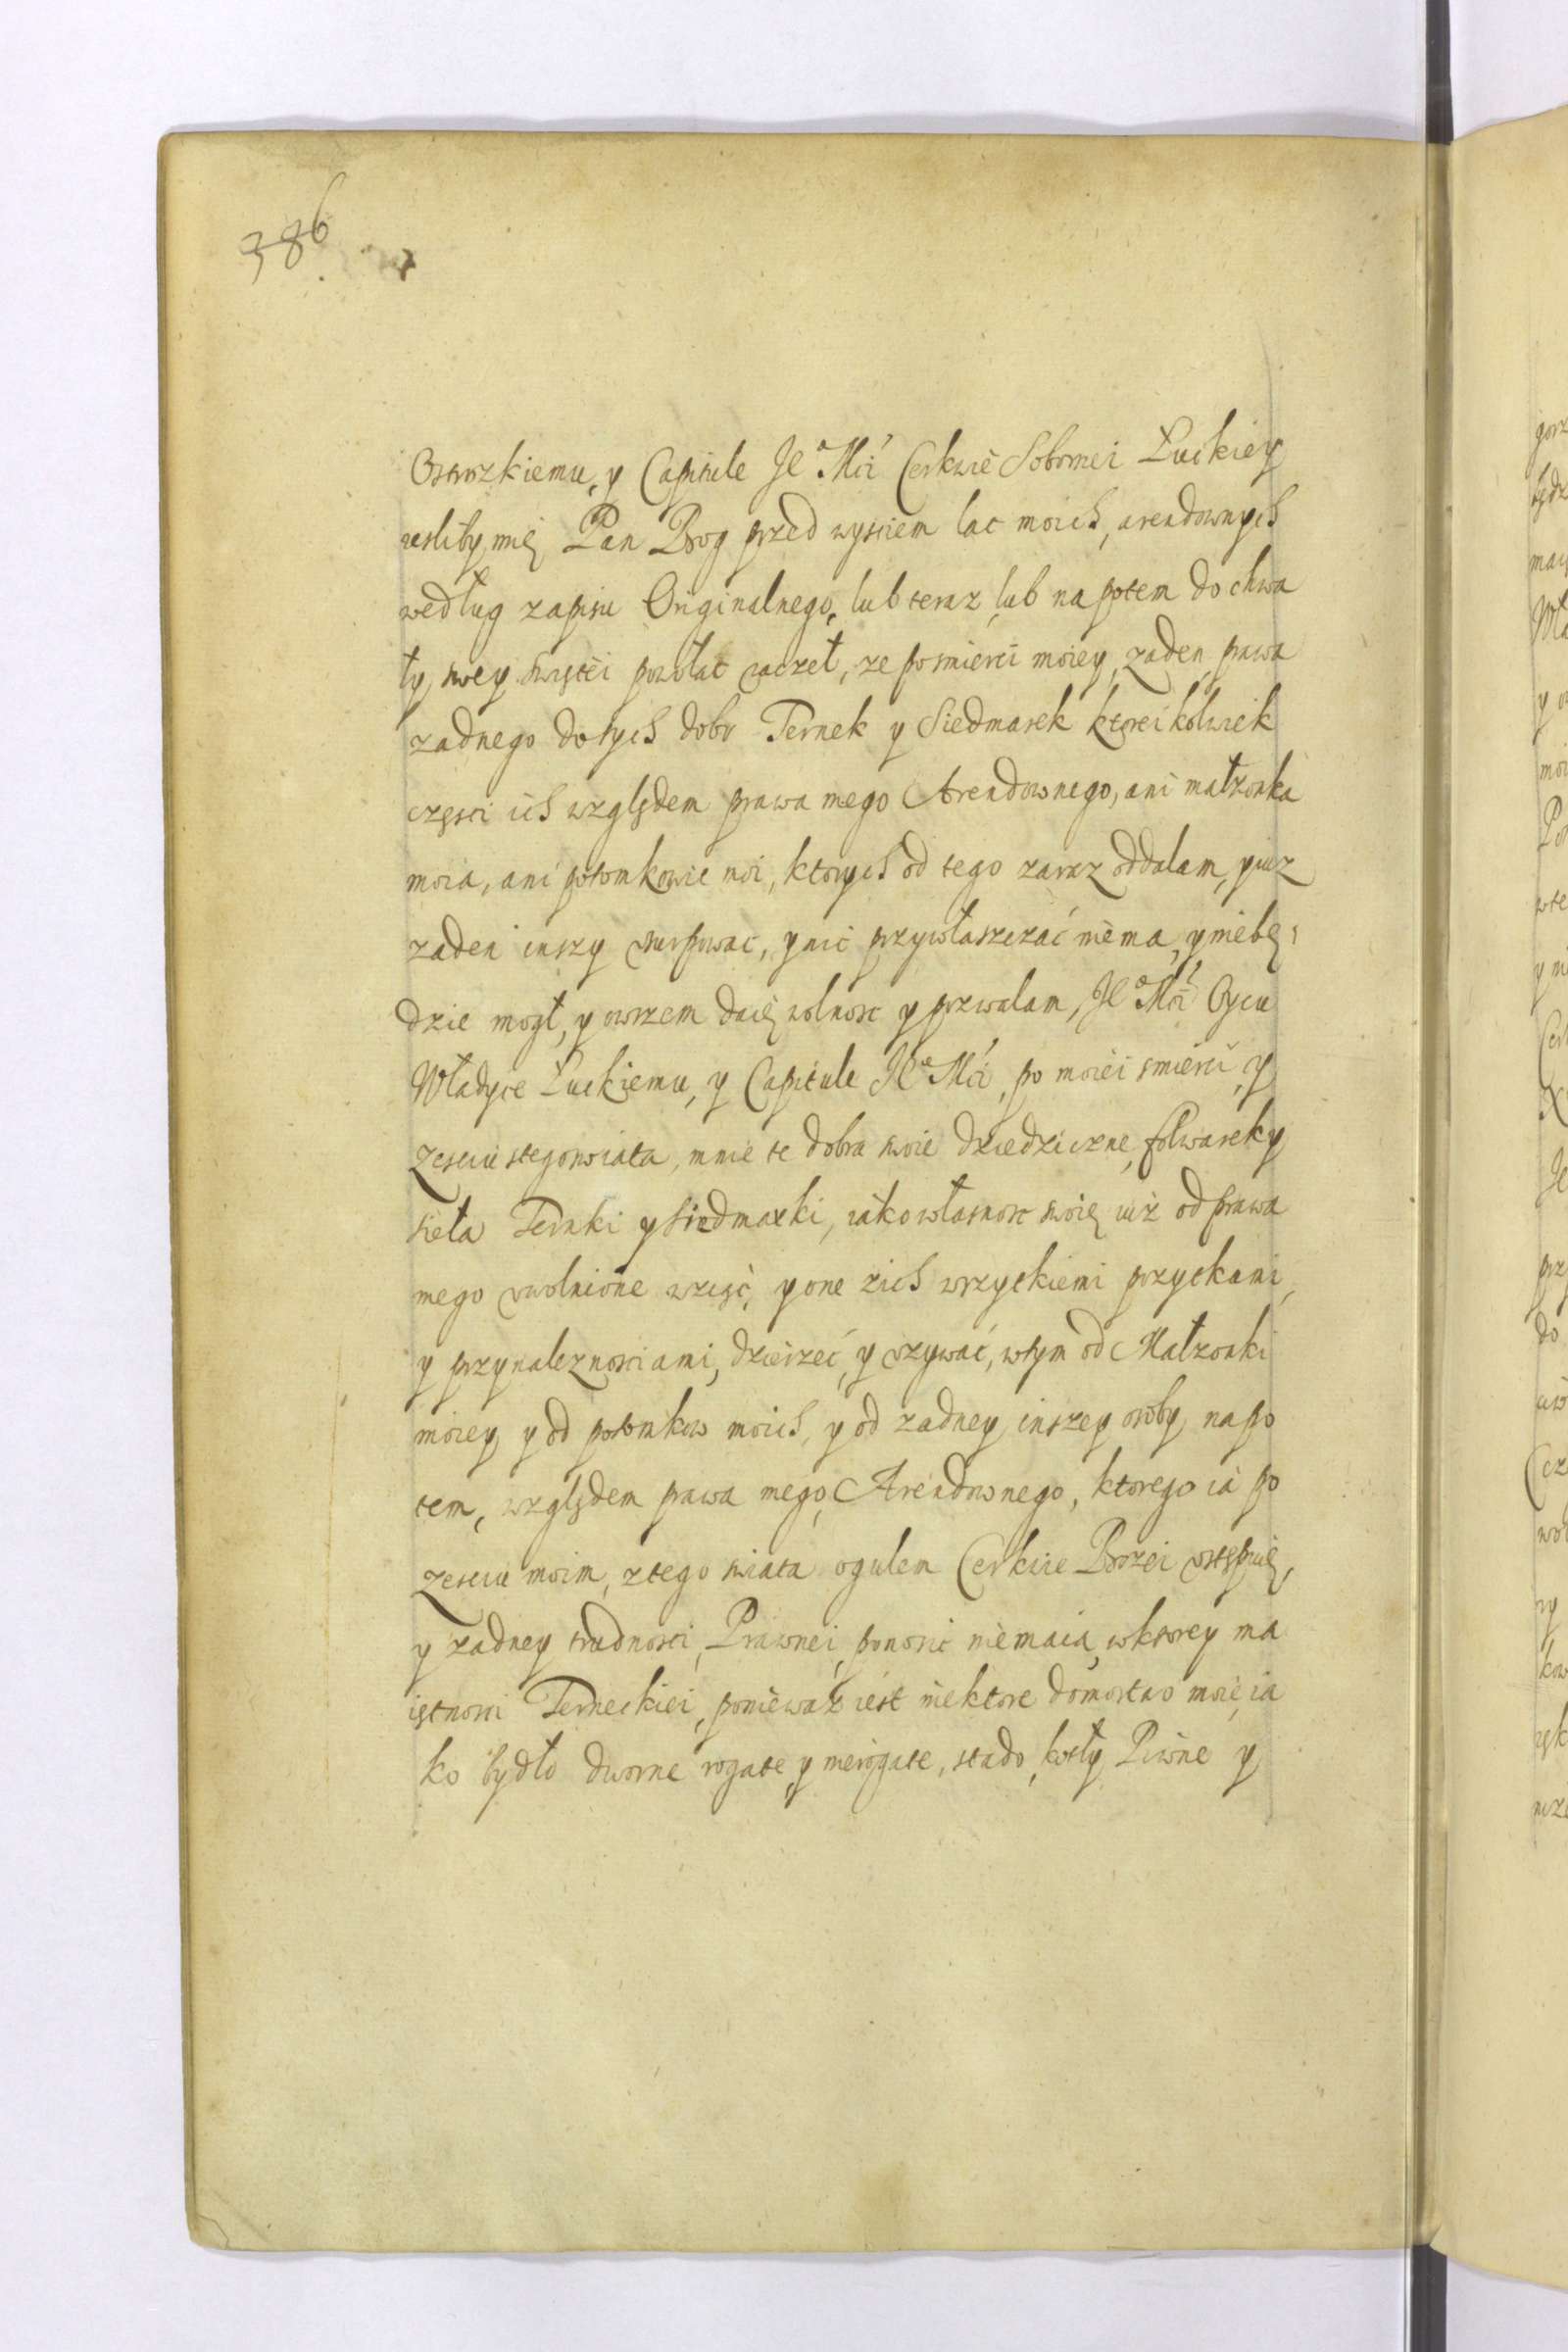 386
Ostrozkiemu, y Capitule Je° Mći Cerkwie Sobornei Łuckiey
iesliby mię Pan Bog przed wysciem lat moich, arendownych
według zapisu Originalnego, lub teraz, lub napotem do chwa
ły swey swiętei powołac raczeł, ze posmierci moiey, zaden prawa
zadnego dotych dobr Ternek y Siedmarek ktoreikolwiek
częsci ich względem prawa mego Arendownego, ani małzonka
moia, ani potomkowie moi, ktorych od tego zaraz oddalam, yiuz
zaden inszy vsurpowac, ynic przywłaszczać niema, yniebę
dzie mogł, y owszem daię wolnosc y pozwalam, Je° Mći Oycu
Władyce Łuckiemu, y Capitule Je° Mći, po moiei smierci, y
Zesciu stego swiata, mnie te dobra swoie dziedziczne, folwarek y
sieła Ternki y Siedmarki, iako własnosc swoię iuż od prawa
mego vwolnione wziąć, yone zich wszytkiemi pozytkami,
y przynaleznosciami, dzierzeć, y vzywać, wtym od Małzonki
moiey y od potomkow moich, y od zadney inszey osoby napo
tem, względem prawa mego, Arendownego, ktorego ia po
Zesciu moim, ztego swiata ogulem Cerkwie Bozei vstępuię,
y zadney trudnosci, Prawnei, ponosic niemaią, wktorey ma
iętnosci Terneckiei, ponieważ iest niektore domostwo moie, ia
ko bydło dworne rogate, y nierogate, stado, kotły Piwne y